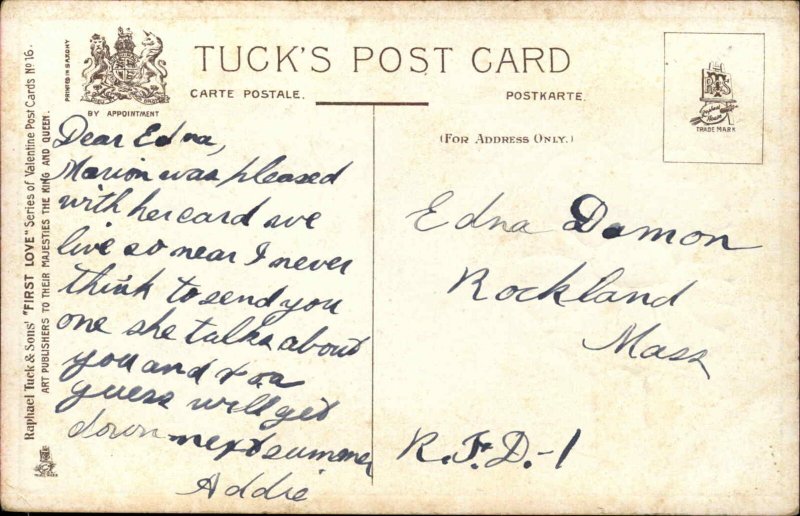 TUCK'S POST CARD
CARTE POSTALE.
POSTKARTE.
BY APPOINTMENT
PRINTED IN SAXONY
(FOR ADDRESS ONLY.)
TRADE MARK
Raphael Tuck & Sons' "FIRST LOVE" Series of Valentine Post Cards No 16.
ART PUBLISHERS TO THEIR MAJESTIES THE KING AND QUEEN.
Dear Edna,
Marion was pleased
with her card we
live so near I never
think to send you
one she talks about
you and
guess will get
down next summer
Addie
Edna Damon
Rockland
Mass
R.F.D.-1